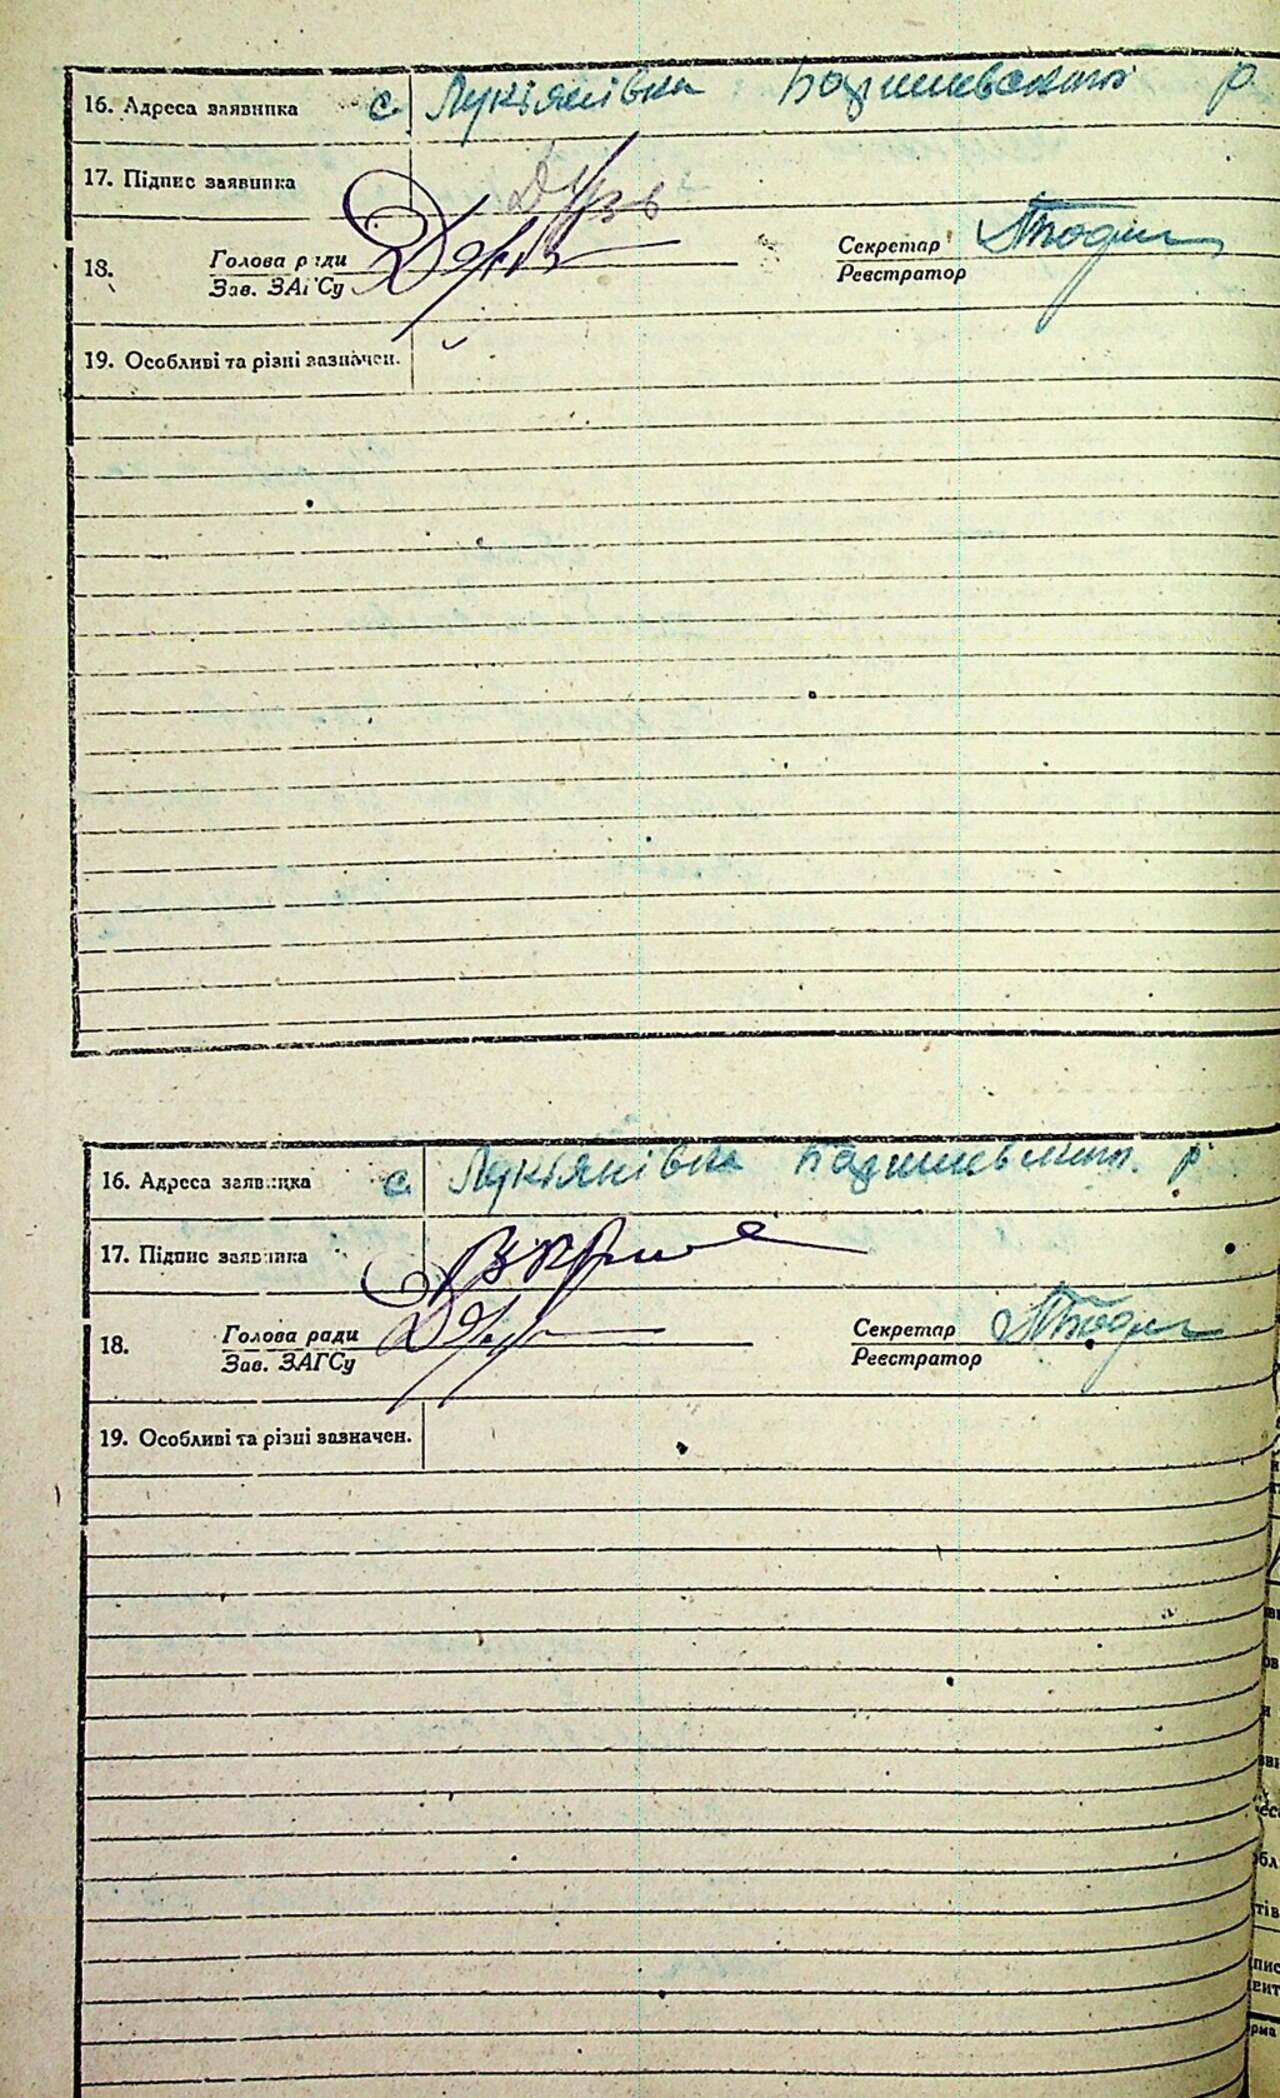 16. Адреса заявника с. Лукіянівка Баришевського р.
17. Підпис заявника
18. Голова ради Секретар
Зав. ЗАГСу Реєстратор
19. Особливі та різні зазначен.
16. Адреса заявника с. Лукіянівка Баришевського р.
17. Підпис заявника
18. Голова ради Секретар
Зав. ЗАГСу Реєстратор
19. Особливі та різні зазначен.